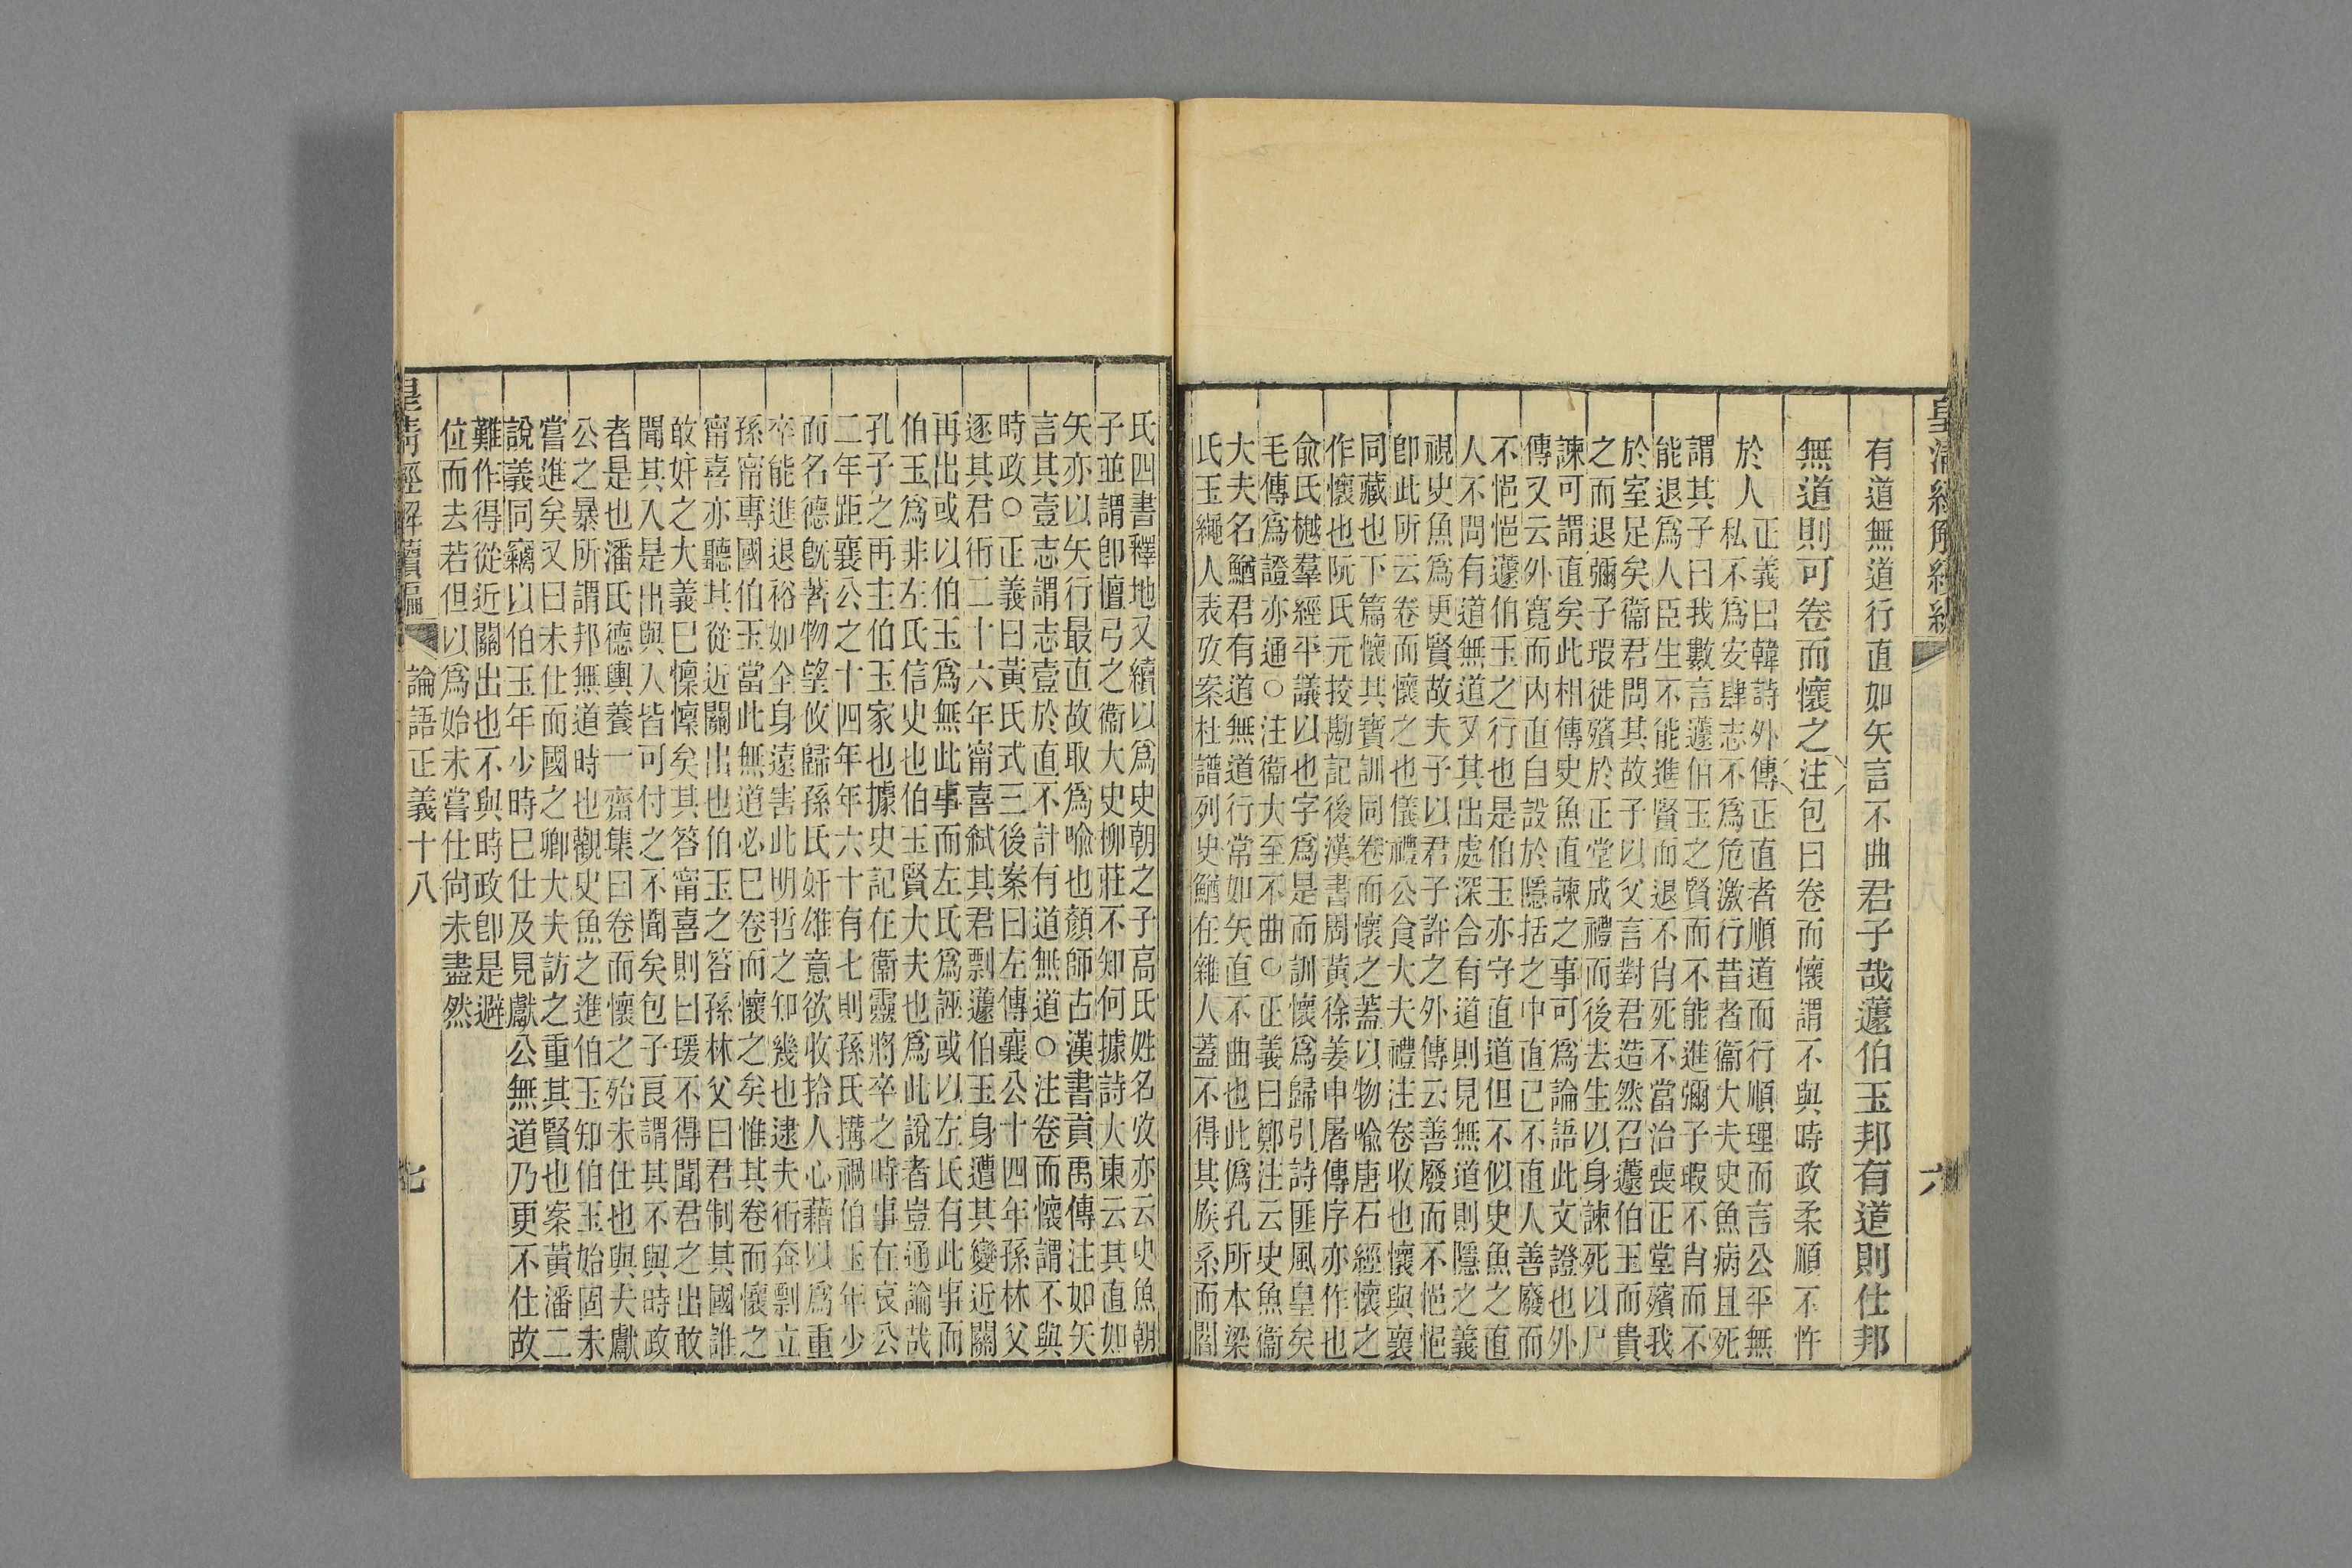 皇清經解續編
六
有道無道行直如矢言不曲君子哉蘧伯玉邦有道則仕邦
無道則可卷而懷之注包曰卷而懷謂不與時政柔順不忤
於人
正義曰韓詩外傳正直者順道而行順理而言公平無
私不爲安肆志不爲危激行昔者衞大夫史魚病且死
謂其子曰我數言蘧伯玉之賢而不能進彌子瑕不肖而不
能退爲人臣生不能進賢而退不肖死不當治喪正堂殯我
於室足矣衞君問其故子以父言對君造然召蘧伯玉而貴
之而退彌子瑕徙殯於正堂成禮而後去生以身諫死以尸
諫可謂直矣此相傳史魚直諫之事可爲論語此文證也外
傳又云外寬而內直自設於隱括之中直己不直人善廢而
不悒悒蘧伯玉之行也是伯玉亦守直道但不似史魚之直
人不問有道無道又其出處深合有道則見無道則隱之義
視史魚爲更賢故夫子以君子許之外傳云善廢而不悒悒
卽此所云卷而懷之也儀禮公食大夫禮注卷收也懷與襄
同藏也下篇懷其寶訓同卷而懷之蓋以物喻唐石經懷之
作懷也阮氏元挍勘記後漢書周黃徐姜申屠傳序亦作也
俞氏樾羣經平議以也字爲是而訓懷爲歸引詩匪風皇矣
毛傳爲證亦通○注衞大至不曲○正義曰鄭注云史魚衞
大夫名鰌君有道無道行常如矢直不曲也此僞孔所本梁
氏玉繩人表攷案杜譜列史鰌在雜人蓋不得其族系而閻
氏四書釋地又續以爲史朝之子高氏姓名攷亦云史魚朝
子並謂卽檀弓之衞大史柳莊不知何據詩大東云其直如
矢亦以矢行最直故取爲喻也顏師古漢書貢禹傳注如矢
言其壹志謂志壹於直不計有道無道○注卷而懷謂不與
時政○正義曰黃氏式三後案曰左傳襄公十四年孫林父
逐其君衎二十六年甯喜弑其君剽蘧伯玉身遭其變近關
再出或以伯玉爲無此事而左氏爲誣或以左氏有此事而
伯玉爲非左氏信史也伯玉賢大夫也爲此說者豈通論哉
孔子之再主伯玉家也據史記在衞靈將卒之時事在哀公
二年距襄公之十四年年六十有七則孫氏搆禍伯玉年少
而名德旣著物望攸歸孫氏奸雄意欲收拾人心藉以爲重
卒能進退裕如全身遠害此明哲之知幾也逮夫衎奔剽立
孫甯專國伯玉當此無道必巳卷而懷之矣惟其卷而懷之
甯喜亦聽其從近關出也伯玉之答孫林父曰君制其國誰
敢奸之大義巳懍懍矣其答甯喜則曰瑗不得聞君之出敢
聞其入是出與人皆可付之不聞矣包子良謂其不與時政
者是也潘氏德輿養一齋集曰卷而懷之殆未仕也與夫獻
公之暴所謂邦無道時也觀史魚之進伯玉知伯玉始固未
嘗進矣又曰未仕而國之卿大夫訪之重其賢也案黃潘二
說義同竊以伯玉年少時巳仕及見獻公無道乃更不仕故
難作得從近關出也不與時政卽是避
位而去若但以爲始未嘗仕尙未盡然
皇清經解續編
論語正義十八
七